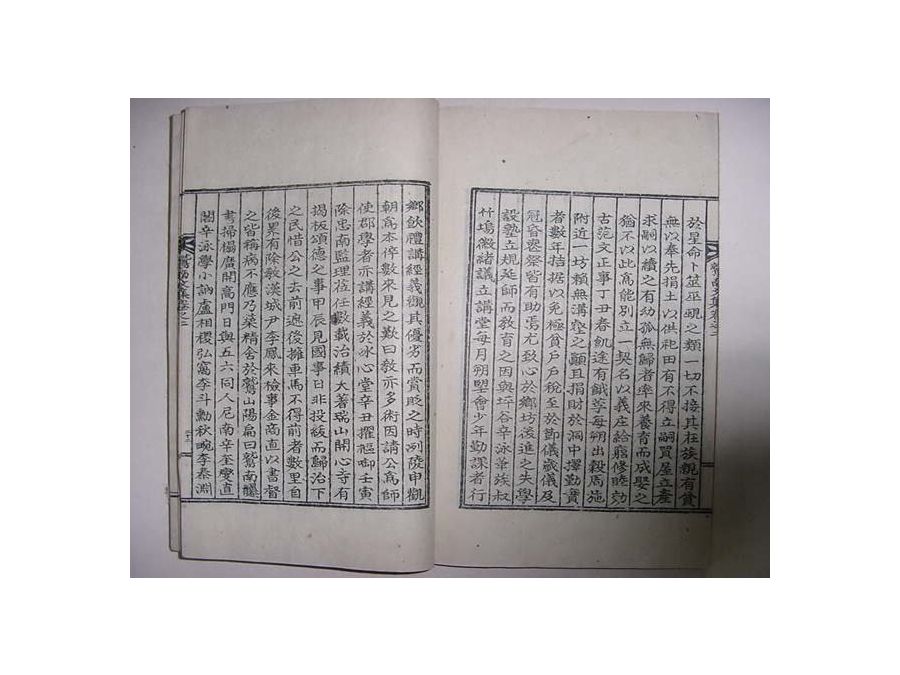 於星命卜筮巫覡之類一切不接其在族親有貧
無以奉先捐土以供祀田有不得立嗣買屋立產
求嗣以續之有幼孤無歸者率來養育而成娶之
猶不以此爲能別立一契名以義庄給窮修睦効
古范文正事丁丑春飢途有餓莩每朔出穀周施
附近一坊賴無溝壑之顚且捐財於洞中擇勤實
者數年拮据以充極貧戶戶稅至於節儀歲儀及
冠昏喪祭皆有助焉尤致心於鄉坊後進之失學
設塾立規延師而教育之因與坪谷辛泳 族叔
竹塢徽緖議立講堂每月朔望會少年勤課者行
鄉飮禮講經義觀其優劣而賞貶之時冽陵申觀
朝爲本倅數來見之歎曰敎亦多術因請公爲師
使郡學者亦講經義於氷心堂辛丑擢 壬寅
除忠南監理莅任數載治績大著瑞山開心寺有
揭板頌德之事甲辰見國事日非投紱而歸治下
之民惜公之去前遮後擁車馬不得前者數里自
後累有除敦漢城尹李鳳來檢事金商直以書督
之皆稱病不應乃築精舍於鷲山陽扁曰鷲南釀
書掃榻廣開高門日與五六同人尼南辛奎燮直
閣辛泳學小訥盧相稷弘窩李斗勳秋畹李泰淵